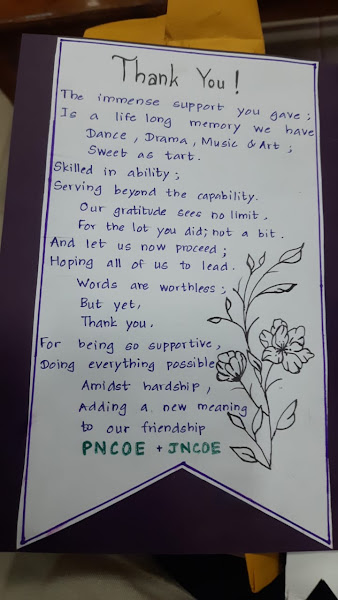 Thank You!
The immense support you gave;
Is a life long memory we have
Dance, Drama, Music & Art;
Sweet as tart.
Skilled in ability;
Serving beyond the capability.
Our gratitude sees no limit,
For the lot you did; not a bit.
And let us now proceed;
Hoping all of us to lead.
Words are worthless;
But yet,
Thank you.
For being so supportive,
Doing everything possible
Amidst hardship,
Adding a new meaning
to our friendship
PNCOE + JNCOE